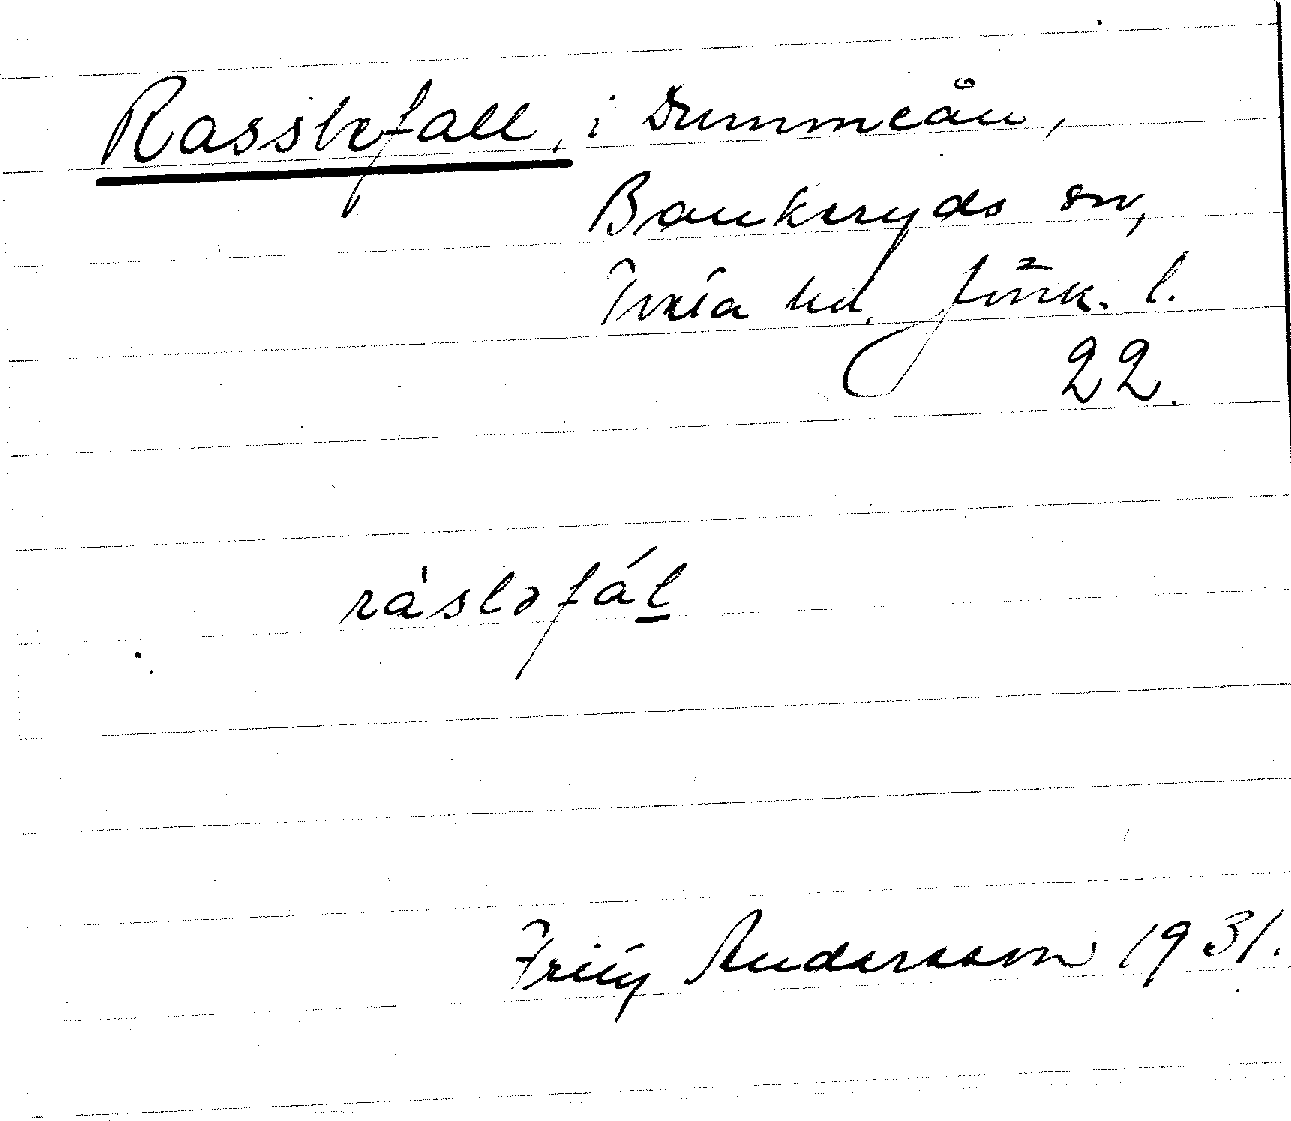 Rasslefall, i Dummeån,
Bankeryds sn,
Tveta hd. Jönk. l.
22.
ràsləfál
Fritz Andersson 1931.